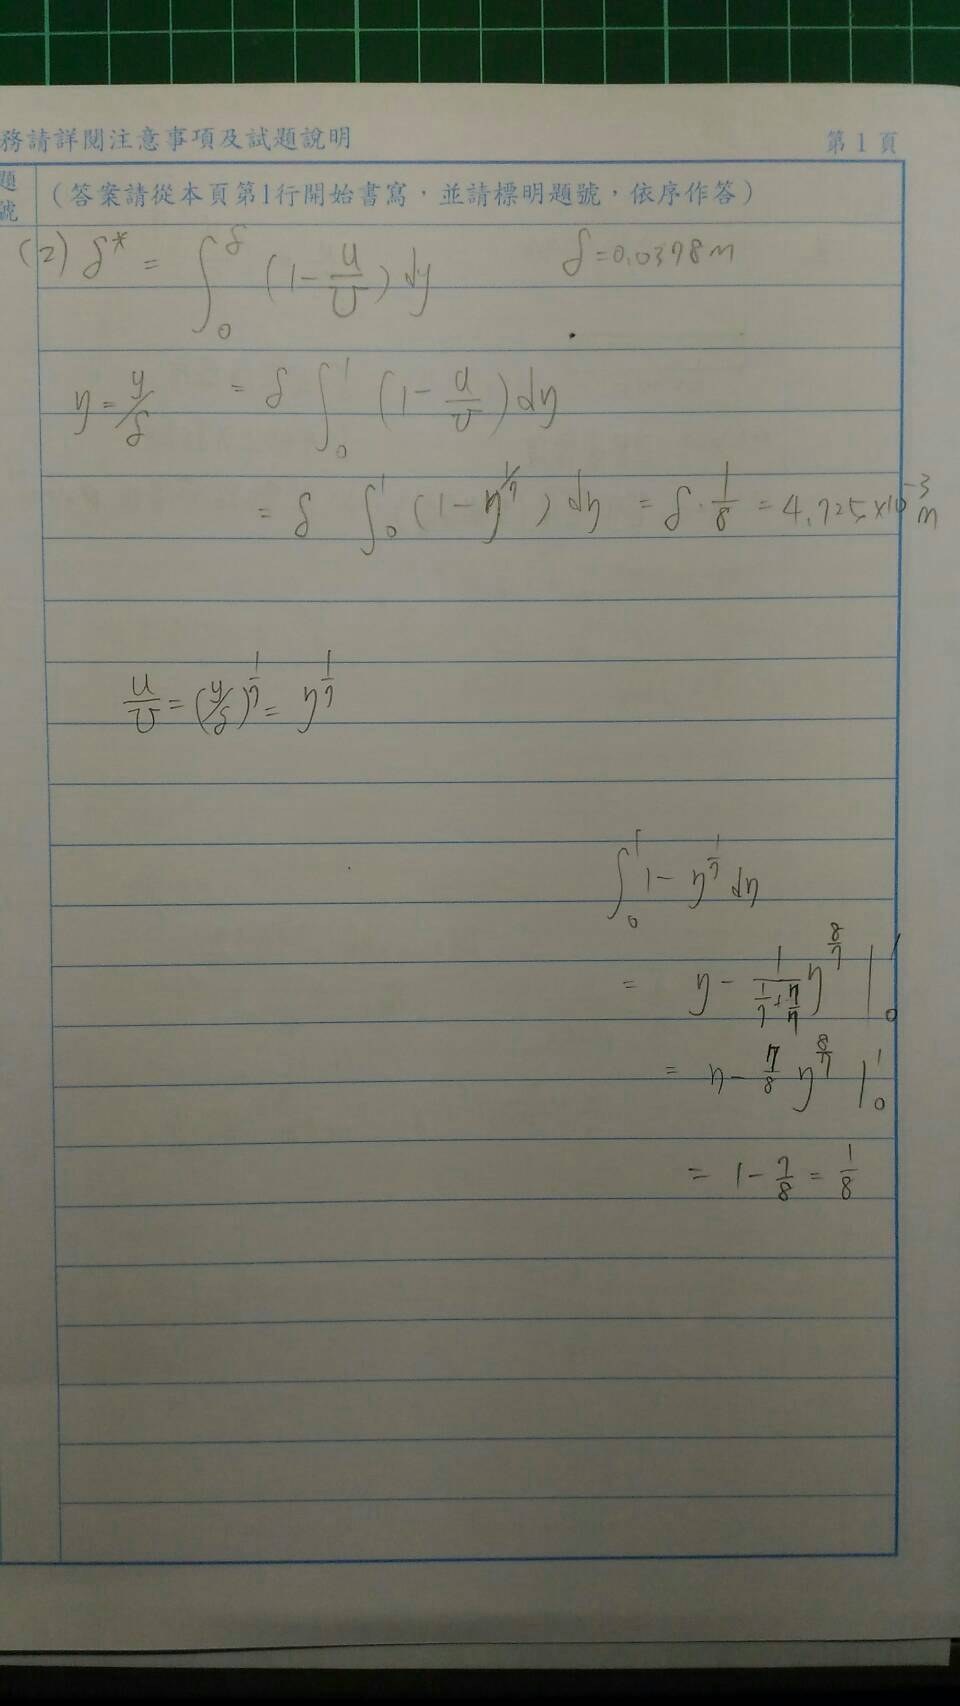 務請詳閱注意事項及試題說明 第1頁
題號 (答案請從本頁第1行開始書寫，並請標明題號，依序作答)
(2) δ* = ∫₀^δ (1 - u/U) dy δ = 0.0378m
η = y/δ = δ ∫₀¹ (1 - u/U) dη
= δ ∫₀¹ (1 - η^(1/7)) dη = δ · 1/8 = 4.725×10⁻³ m
u/U = (y/δ)^(1/7) = η^(1/7)
∫₀¹ 1 - η^(1/7) dη
= η - 1/(1/7 + 7/7) η^(8/7) |₀¹
= η - 7/8 η^(8/7) |₀¹
= 1 - 7/8 = 1/8